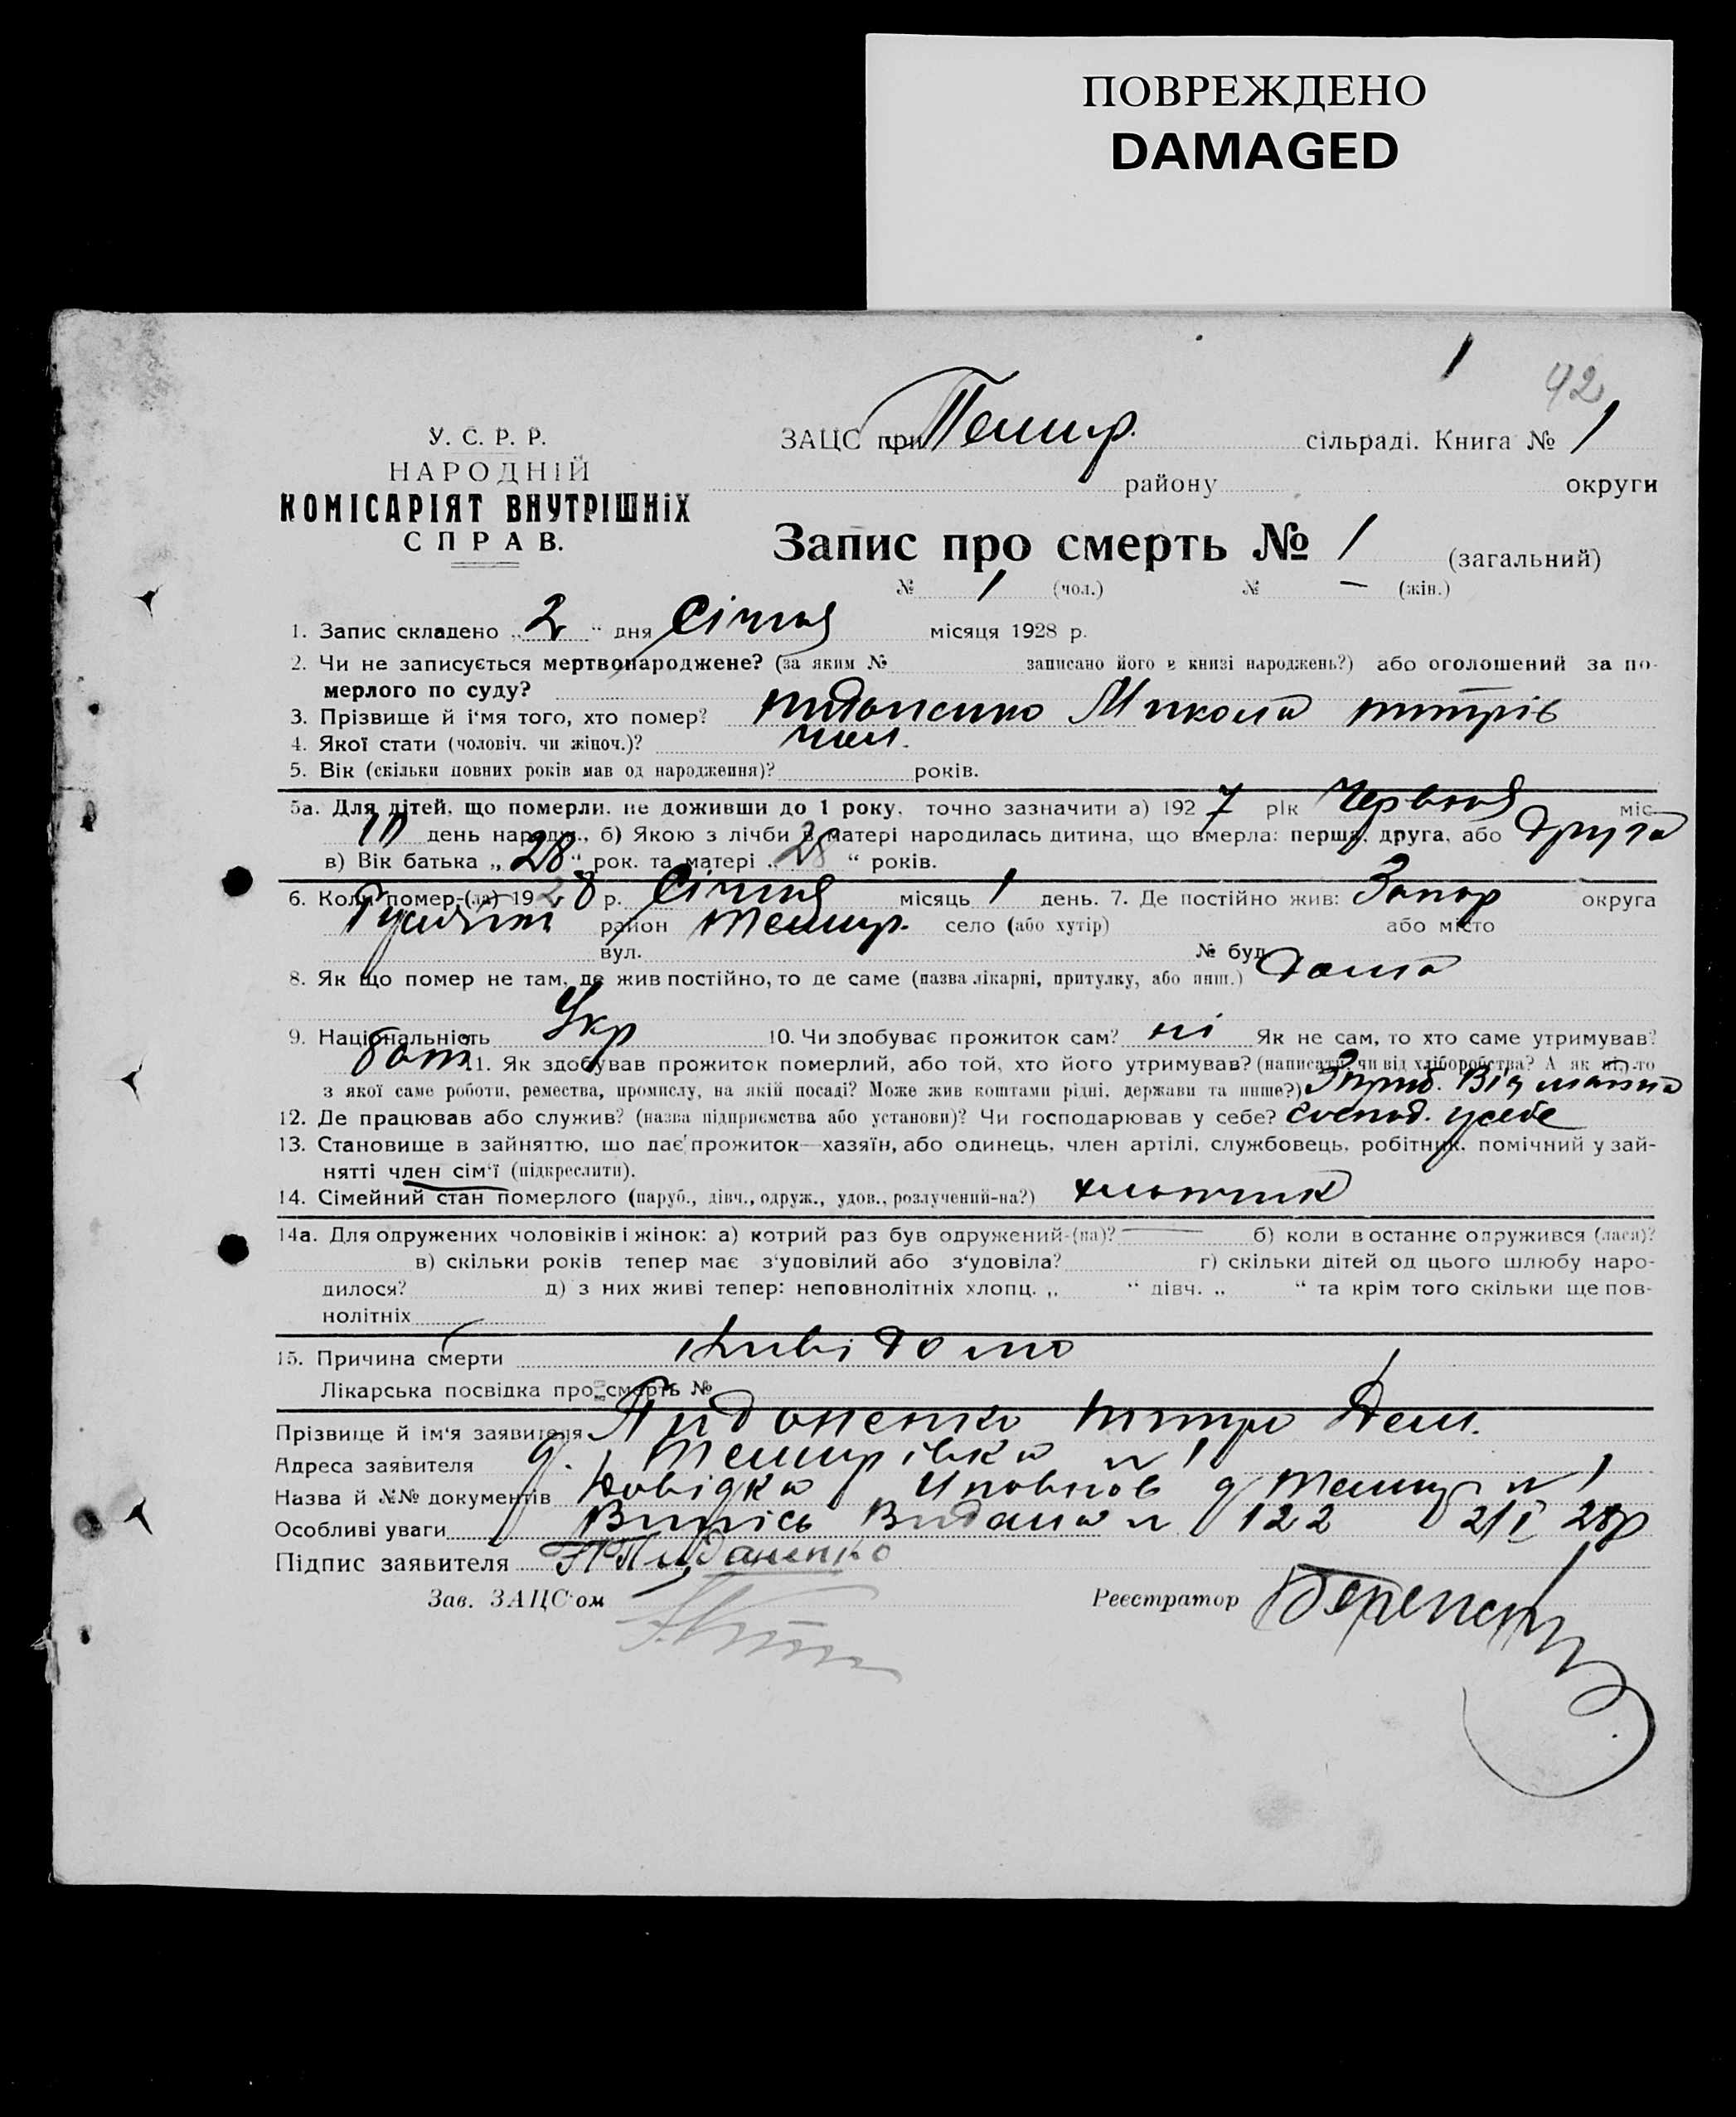 ПОВРЕЖДЕНО
DAMAGED
1
42
У. С. Р. Р.
НАРОДНІЙ
КОМІСАРІЯТ ВНУТРІШНІХ
СПРАВ.
ЗАЦС при Темир. сільраді. Книга № 1
району округи
Запис про смерть № 1 (загальний)
№ 1 (чол.) № — (жін.)
1. Запис складено „ 2 “ дня Січня місяця 1928 р.
2. Чи не записується мертвонароджене? (за яким № записано його в книзі народжень?) або оголошений за по-
мерлого по суду?
3. Прізвище й і'мя того, хто помер? Микола
4. Якої стати (чоловіч. чи жіноч.)? чол.
5. Вік (скільки повних років мав од народження)? років.
5а. Для дітей, що померли, не доживши до 1 року, точно зазначити а) 192 7 рік Червня міс.
день народж., б) Якою з лічби в матері народилась дитина, що вмерла: перша, друга, або друга
в) Вік батька „ 28 “ рок. та матері „ 28 “ років.
6. Коли помер-(ла) 19 28 р. Січня місяць 1 день. 7. Де постійно жив: Запор округа
район Темир. село (або хутір) або місто
вул. № буд.
8. Як що помер не там, де жив постійно, то де саме (назва лікарні, притулку, або инш.) дома
9. Національність Укр 10. Чи здобуває прожиток сам? ні Як не сам, то хто саме утримував?
бат. 11. Як здобував прожиток померлий, або той, хто його утримував? (написати: чи від хліборобства? А як ні, то
з якої саме роботи, ремества, промислу, на якій посаді? Може жив коштами рідні, держави та инше?)
12. Де працював або служив? (назва підприємства або установи)? Чи господарював у себе? господ. у себе
13. Становище в зайняттю, що дає прожиток—хазяїн, або одинець, член артілі, службовець, робітник, помічний у зай-
нятті член сім'ї (підкреслити).
14. Сімейний стан померлого (паруб., дівч., одруж., удов., розлучений-на?) хлопчик
14а. Для одружених чоловіків і жінок: а) котрий раз був одружений-(на)? — б) коли в останнє одружився (лася)?
в) скільки років тепер має з'удовілий або з'удовіла? г) скільки дітей од цього шлюбу наро-
дилося? д) з них живі тепер: неповнолітніх хлопц. „ “ дівч. „ “ та крім того скільки ще пов-
нолітніх
15. Причина смерти Невідомо
Лікарська посвідка про смерть №
Прізвище й ім'я заявителя Пидоненко Дем.
Адреса заявителя Темирівка № 1
Назва й №№ документів Довідка Темир № 1
Особливі уваги Випись видана № 122 2/I 28р
Підпис заявителя
Зав. ЗАЦС'ом Реєстратор